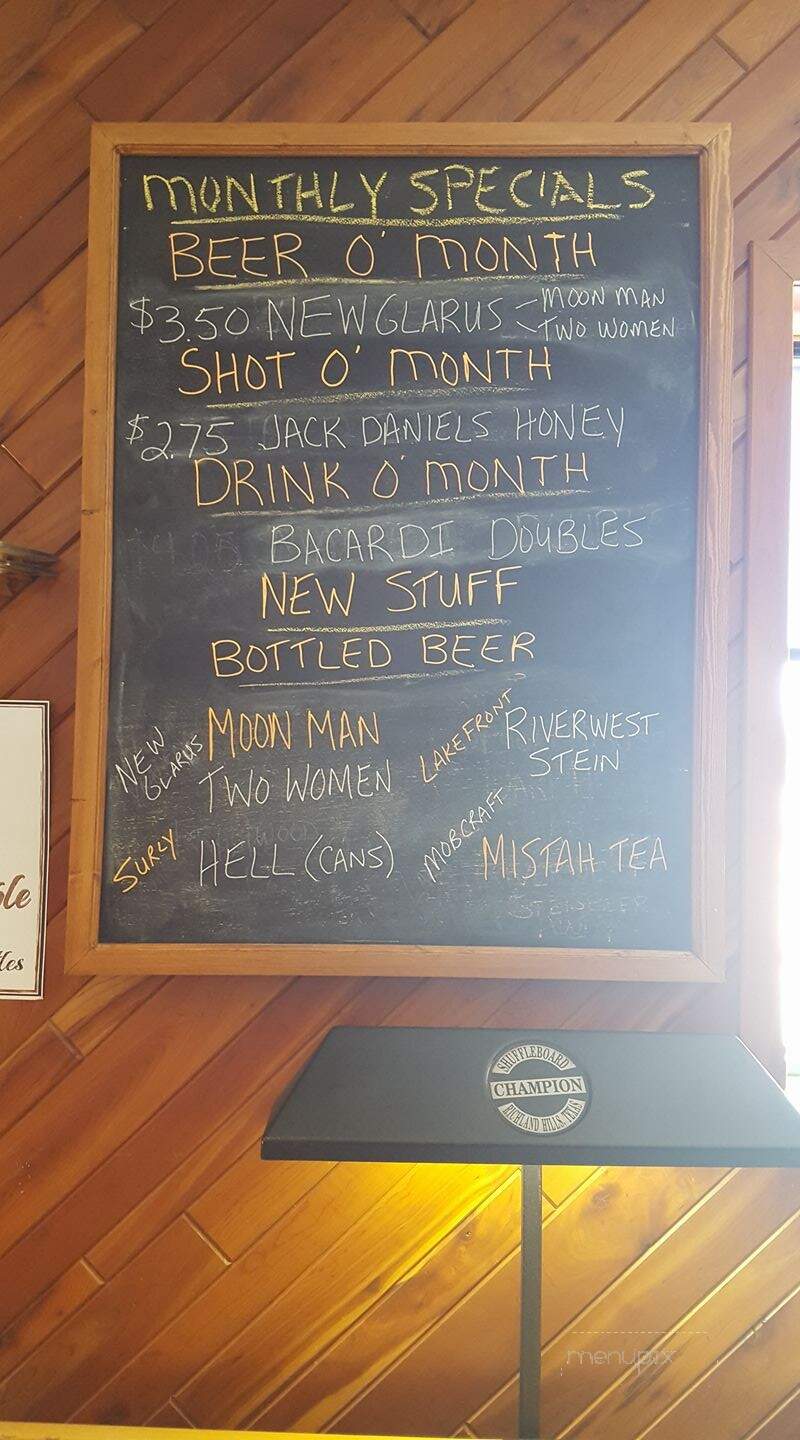 MONTHLY SPECIALS
BEER O' MONTH
$3.50 NEW GLARUS MOON MAN
TWO WOMEN
SHOT O' MONTH
$2.75 JACK DANIELS HONEY
DRINK O' MONTH
BACARDI DOUBLES
NEW STUFF
BOTTLED BEER
NEW GLARUS MOON MAN
TWO WOMEN
LAKEFRONT RIVERWEST
STEIN
SURLY HELL (CANS)
MOBCRAFT MISTAH TEA
SHUFFLEBOARD
CHAMPION
RICHLAND HILLS, TEXAS
menupix